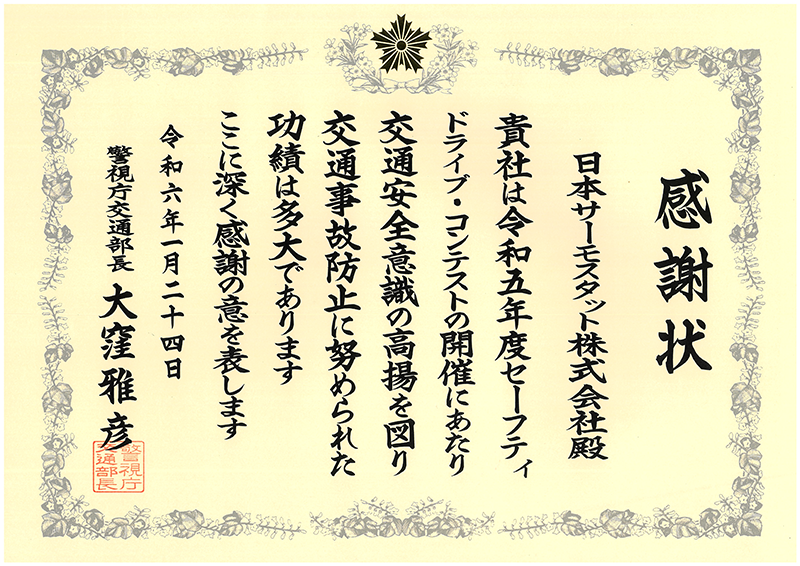 感謝状
日本サーモスタット株式会社殿
貴社は令和五年度セーフティ
ドライブ・コンテストの開催にあたり
交通安全意識の高揚を図り
交通事故防止に努められた
功績は多大であります
ここに深く感謝の意を表します
令和六年一月二十四日
警視庁交通部長 大窪雅彦
警視庁
交通部長